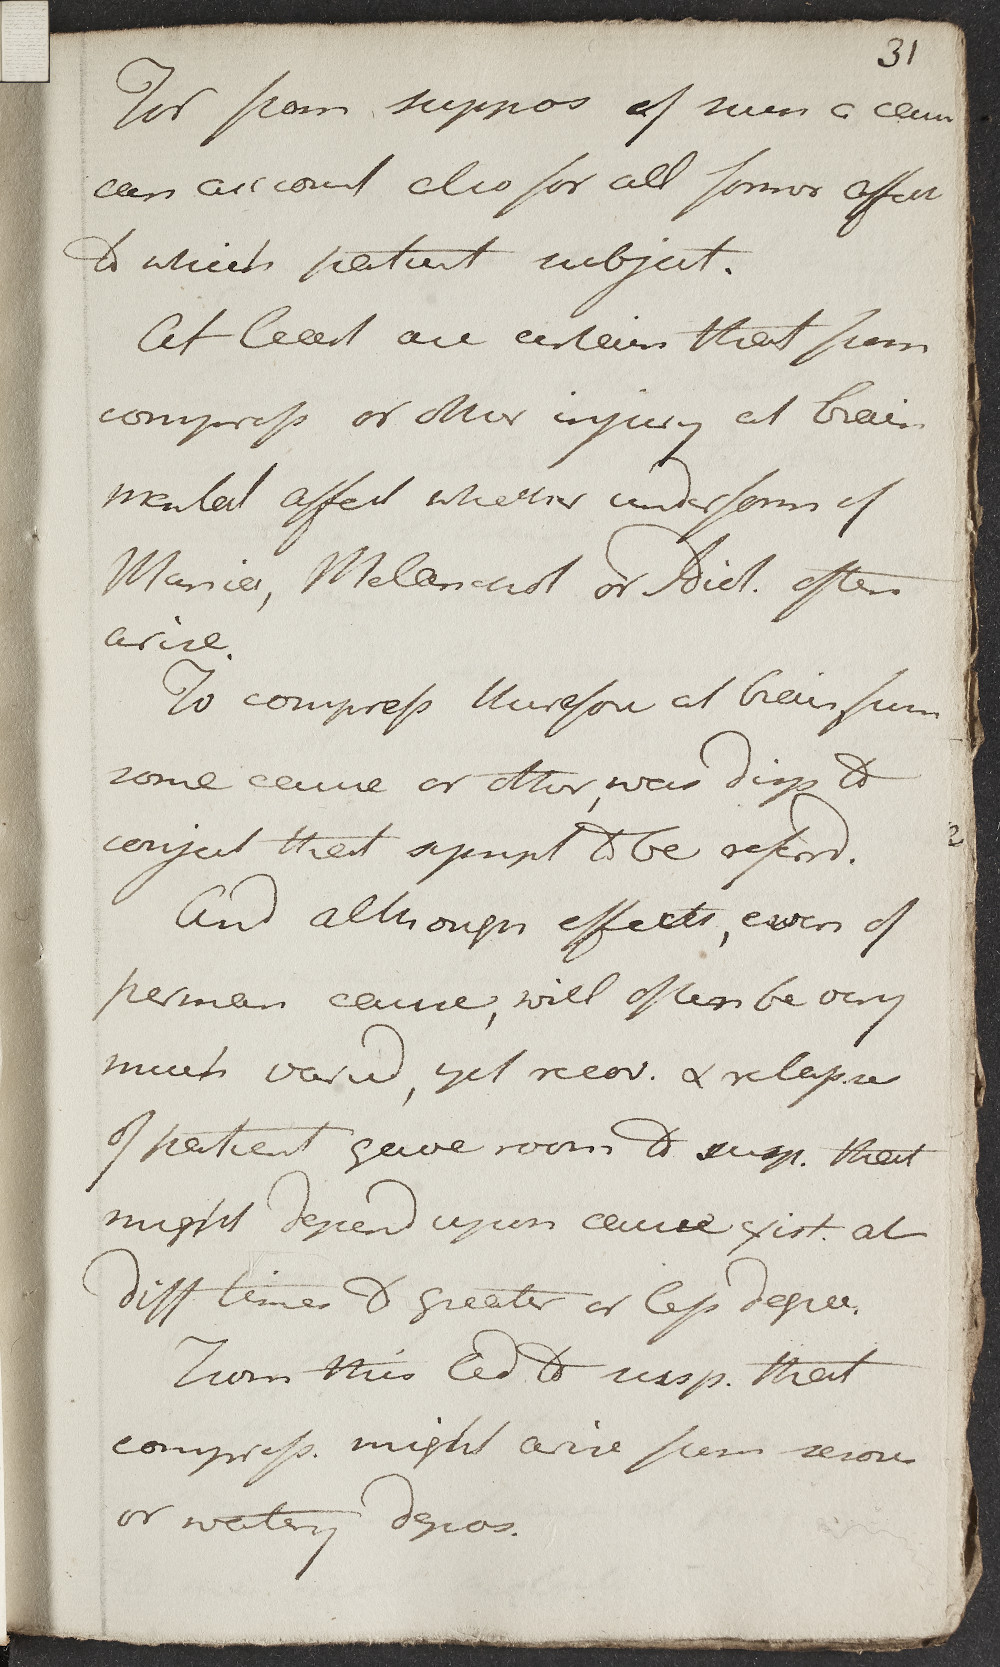 31
For from suppos of such a cause
can account also for all former affect
to which patient subject.
At least are certain that from
compress or other injury at brain
mental affect whether under form of
Mania, Melanchol or Idiot. often
arise.
To compress therefore at brain, from
some cause or other, was disp to
conject that sympt to be referrd.
And although effects, even of
perman cause, will often be very
much varied, yet recov. & relapse
of patient gave room to susp. that
might depend upon cause exist. at
diff times to greater or less degree.
From this led to susp. that
compress. might arise from serous
or watery depos.